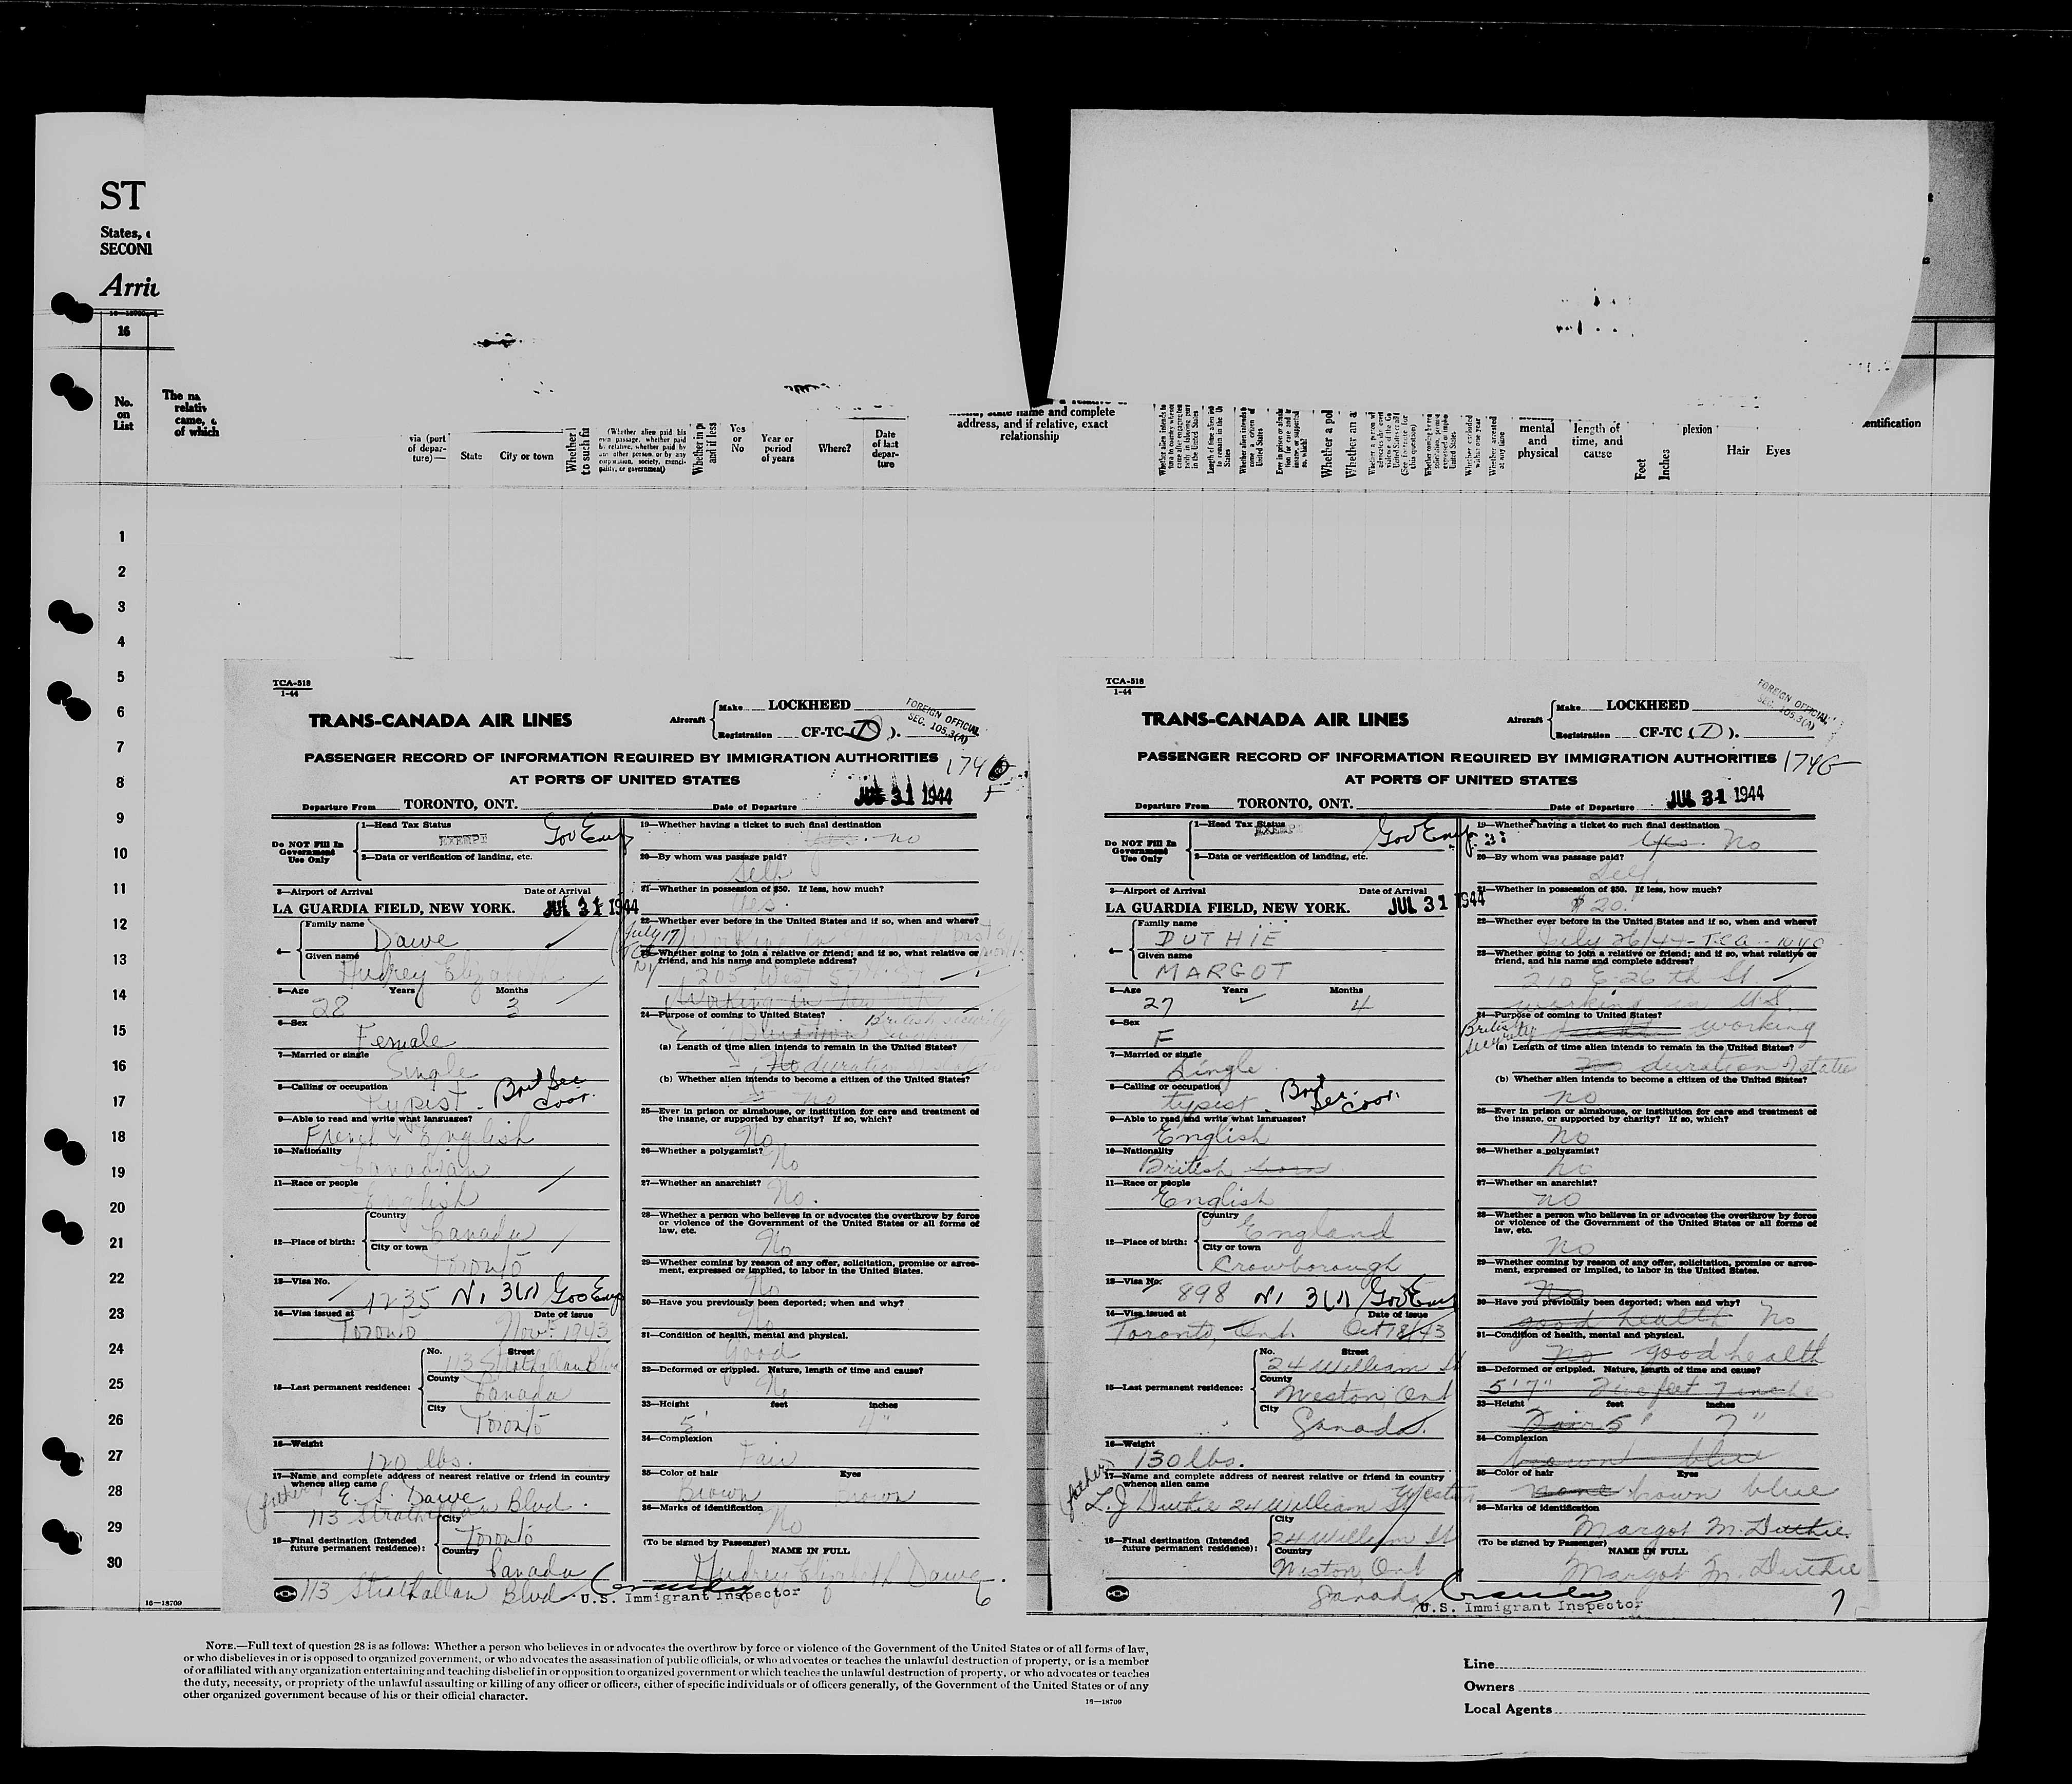 ST
States,
SECON
Arriv
16
No.
on
List
The na
relativ
came,
of which
via (port
of depar-
ture)—
State
City or town
(Whether alien paid his
own passage, whether paid
by relative, whether paid by
any other person, or by any
corporation, society, munici-
pality, or government)
Yes
or
No
Year or
period
of years
Where?
Date
of last
depar-
ture
name and complete
address, and if relative, exact
relationship
Whether a pol
Whether an a
mental
and
physical
length of
time, and
cause
Feet
Inches
plexion
Hair
Eyes
entification
1
2
3
4
5
6
7
8
9
10
11
12
13
14
15
16
17
18
19
20
21
22
23
24
25
26
27
28
29
30
TCA-518
1-44
TRANS-CANADA AIR LINES
Aircraft
Make LOCKHEED
Registration CF-TC (D).
FOREIGN OFFICIAL
SEC. 105.3(A)
PASSENGER RECORD OF INFORMATION REQUIRED BY IMMIGRATION AUTHORITIES
AT PORTS OF UNITED STATES
Departure From TORONTO, ONT.
Date of Departure JUL 31 1944
Do NOT Fill In
Government
Use Only
1—Head Tax Status
EXEMPT Gov Emp
2—Data or verification of landing, etc.
3—Airport of Arrival Date of Arrival
LA GUARDIA FIELD, NEW YORK. JUL 31 1944
4—
Family name
Dawe
Given name
Audrey Elizabeth
5—Age Years Months
28 3
6—Sex
Female
7—Married or single
Single
8—Calling or occupation
Typist. Brit Sec Coor.
9—Able to read and write what languages?
French & English
10—Nationality
Canadian
11—Race or people
English
12—Place of birth:
Country
Canada
City or town
Toronto
13—Visa No.
1235 N. 3(1) Gov Emp
14—Visa issued at Date of issue
Toronto Nov. 1943
15—Last permanent residence:
No. Street
113 Strathallan Blvd
County
Canada
City
Toronto
16—Weight
120 lbs.
17—Name and complete address of nearest relative or friend in country
whence alien came
(father) E. S. Dawe
113 Strathallan Blvd.
18—Final destination (Intended
future permanent residence):
City
Toronto
Country
Canada
113 Strathallan Blvd.
19—Whether having a ticket to such final destination
Yes. no
20—By whom was passage paid?
Self
21—Whether in possession of $50. If less, how much?
Yes.
22—Whether ever before in the United States and if so, when and where?
(July 17) Working in
23—Whether going to join a relative or friend; and if so, what relative or
friend, and his name and complete address?
205 West
Working in New York
24—Purpose of coming to United States?
British security
(a) Length of time alien intends to remain in the United States?
No duration
(b) Whether alien intends to become a citizen of the United States?
no
25—Ever in prison or almshouse, or institution for care and treatment of
the insane, or supported by charity? If so, which?
No
26—Whether a polygamist?
No
27—Whether an anarchist?
No.
28—Whether a person who believes in or advocates the overthrow by force
or violence of the Government of the United States or all forms of
law, etc.
No
29—Whether coming by reason of any offer, solicitation, promise or agree-
ment, expressed or implied, to labor in the United States.
No
30—Have you previously been deported; when and why?
No
31—Condition of health, mental and physical.
Good
32—Deformed or crippled. Nature, length of time and cause?
No
33—Height feet inches
5' 4"
34—Complexion
Fair
35—Color of hair Eyes
Brown Brown
36—Marks of identification
No
(To be signed by Passenger) NAME IN FULL
Audrey Elizabeth Dawe.
U.S. Immigrant Inspector
6
TCA-518
1-44
TRANS-CANADA AIR LINES
Aircraft
Make LOCKHEED
Registration CF-TC (D).
FOREIGN OFFICIAL
SEC. 105.3(A)
PASSENGER RECORD OF INFORMATION REQUIRED BY IMMIGRATION AUTHORITIES 174G
AT PORTS OF UNITED STATES
Departure From TORONTO, ONT.
Date of Departure JUL 31 1944
Do NOT Fill In
Government
Use Only
1—Head Tax Status
EXEMPT Gov Emp
2—Data or verification of landing, etc.
3—Airport of Arrival Date of Arrival
LA GUARDIA FIELD, NEW YORK. JUL 31 1944
4—
Family name
DUTHIE
Given name
MARGOT
5—Age Years Months
27 4
6—Sex
F
7—Married or single
Single
8—Calling or occupation
typist. Brit Sec. Coor.
9—Able to read and write what languages?
English
10—Nationality
British born
11—Race or people
English
12—Place of birth:
Country
England
City or town
Crowborough
13—Visa No.
898 N. 3(1) Gov Emp
14—Visa issued at Date of issue
Toronto, Ont. Oct 18/43
15—Last permanent residence:
No. Street
24 William St
County
Weston, Ont
City
Canada.
16—Weight
130 lbs.
17—Name and complete address of nearest relative or friend in country
whence alien came
(father) L. J Duthie 24 William St Weston
18—Final destination (Intended
future permanent residence):
City
24 William St
Country
Weston, Ont
Canada
19—Whether having a ticket to such final destination
Yes. No
20—By whom was passage paid?
Self.
21—Whether in possession of $50. If less, how much?
$20.
22—Whether ever before in the United States and if so, when and where?
July 26/44 - T.C.A. - NYC
23—Whether going to join a relative or friend; and if so, what relative or
friend, and his name and complete address?
210 E-26 th St.
working in U.S.
24—Purpose of coming to United States?
British Security working
(a) Length of time alien intends to remain in the United States?
no duration
(b) Whether alien intends to become a citizen of the United States?
no
25—Ever in prison or almshouse, or institution for care and treatment of
the insane, or supported by charity? If so, which?
no
26—Whether a polygamist?
no
27—Whether an anarchist?
no
28—Whether a person who believes in or advocates the overthrow by force
or violence of the Government of the United States or all forms of
law, etc.
no
29—Whether coming by reason of any offer, solicitation, promise or agree-
ment, expressed or implied, to labor in the United States.
No
30—Have you previously been deported; when and why?
good health No
31—Condition of health, mental and physical.
No good health
32—Deformed or crippled. Nature, length of time and cause?
5'7" Five feet 7 inches
33—Height feet inches
Fair 5' 7"
34—Complexion
brown blue
35—Color of hair Eyes
none brown blue
36—Marks of identification
Margot M. Duthie.
(To be signed by Passenger) NAME IN FULL
Margot M. Duthie
U.S. Immigrant Inspector
7
16—18709
NOTE.—Full text of question 28 is as follows: Whether a person who believes in or advocates the overthrow by force or violence of the Government of the United States or of all forms of law,
or who disbelieves in or is opposed to organized government, or who advocates the assassination of public officials, or who advocates or teaches the unlawful destruction of property, or is a member
of or affiliated with any organization entertaining and teaching disbelief in or opposition to organized government or which teaches the unlawful destruction of property, or who advocates or teaches
the duty, necessity, or propriety of the unlawful assaulting or killing of any officer or officers, either of specific individuals or of officers generally, of the Government of the United States or of any
other organized government because of his or their official character.
16—18709
Line
Owners
Local Agents